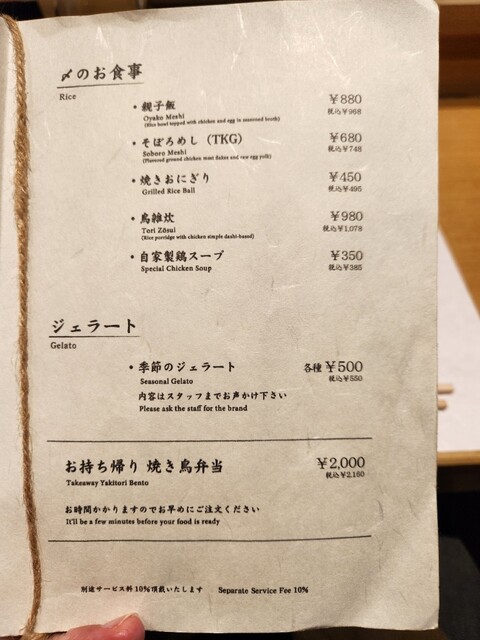 〆のお食事
Rice
・親子飯 ¥880
Oyako Meshi 税込¥968
(Rice bowl topped with chicken and egg in seasoned broth)
・そぼろめし (TKG) ¥680
Soboro Meshi 税込¥748
(Flavored ground chicken meat flakes and raw egg yolk)
・焼きおにぎり ¥450
Grilled Rice Ball 税込¥495
・鳥雑炊 ¥980
Tori Zōsui 税込¥1,078
(Rice porridge with chicken simple dashi-based)
・自家製鶏スープ ¥350
Special Chicken Soup 税込¥385
ジェラート
Gelato
・季節のジェラート 各種 ¥500
Seasonal Gelato 税込¥550
内容はスタッフまでお声かけ下さい
Please ask the staff for the brand
お持ち帰り 焼き鳥弁当 ¥2,000
Takeaway Yakitori Bento 税込¥2,160
お時間かかりますのでお早めにご注文ください
It'll be a few minutes before your food is ready
別途サービス料10%頂戴いたします Separate Service Fee 10%